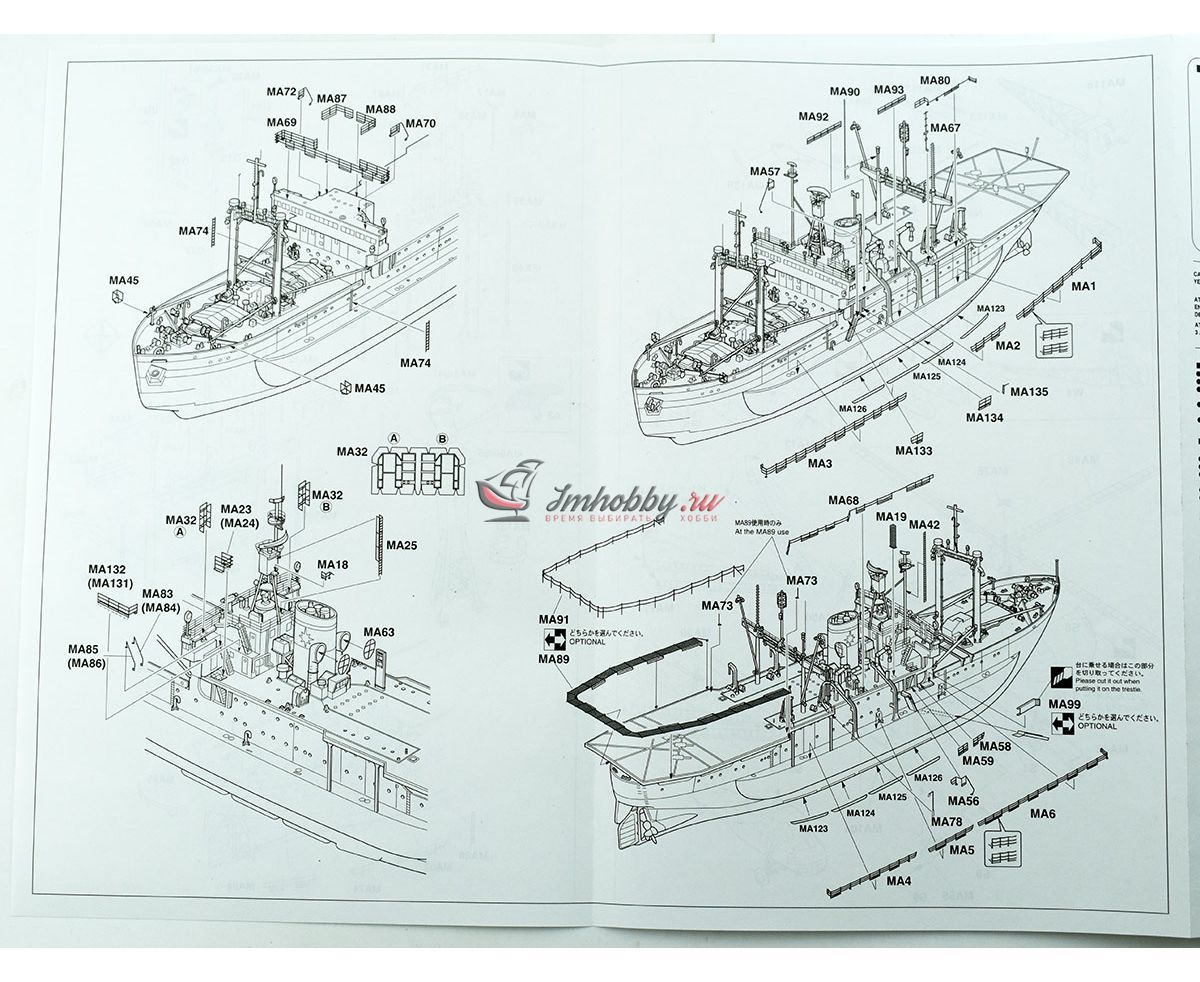 MA72
MA87
MA88
MA69
MA70
MA74
MA45
MA74
MA45
MA90
MA93
MA80
MA92
MA67
MA57
MA1
MA123
MA2
MA124
MA125
MA135
MA126
MA134
MA133
MA3
A
B
MA32
MA32
A
MA23
(MA24)
MA32
B
MA25
MA18
MA132
(MA131)
MA83
(MA84)
MA85
(MA86)
MA63
Imhobby.ru
ВРЕМЯ ВЫБИРАТЬ ХОББИ
MA68
MA89使用時のみ
At the MA89 use
MA19
MA42
MA73
MA73
MA91
どちらかを選んでください。
OPTIONAL
MA89
台に乗せる場合はこの部分
を切り取ってください。
Please cut it out when
putting it on the trestle.
MA99
どちらかを選んでください。
OPTIONAL
MA58
MA59
MA126
MA56
MA125
MA124
MA78
MA6
MA123
MA5
MA4